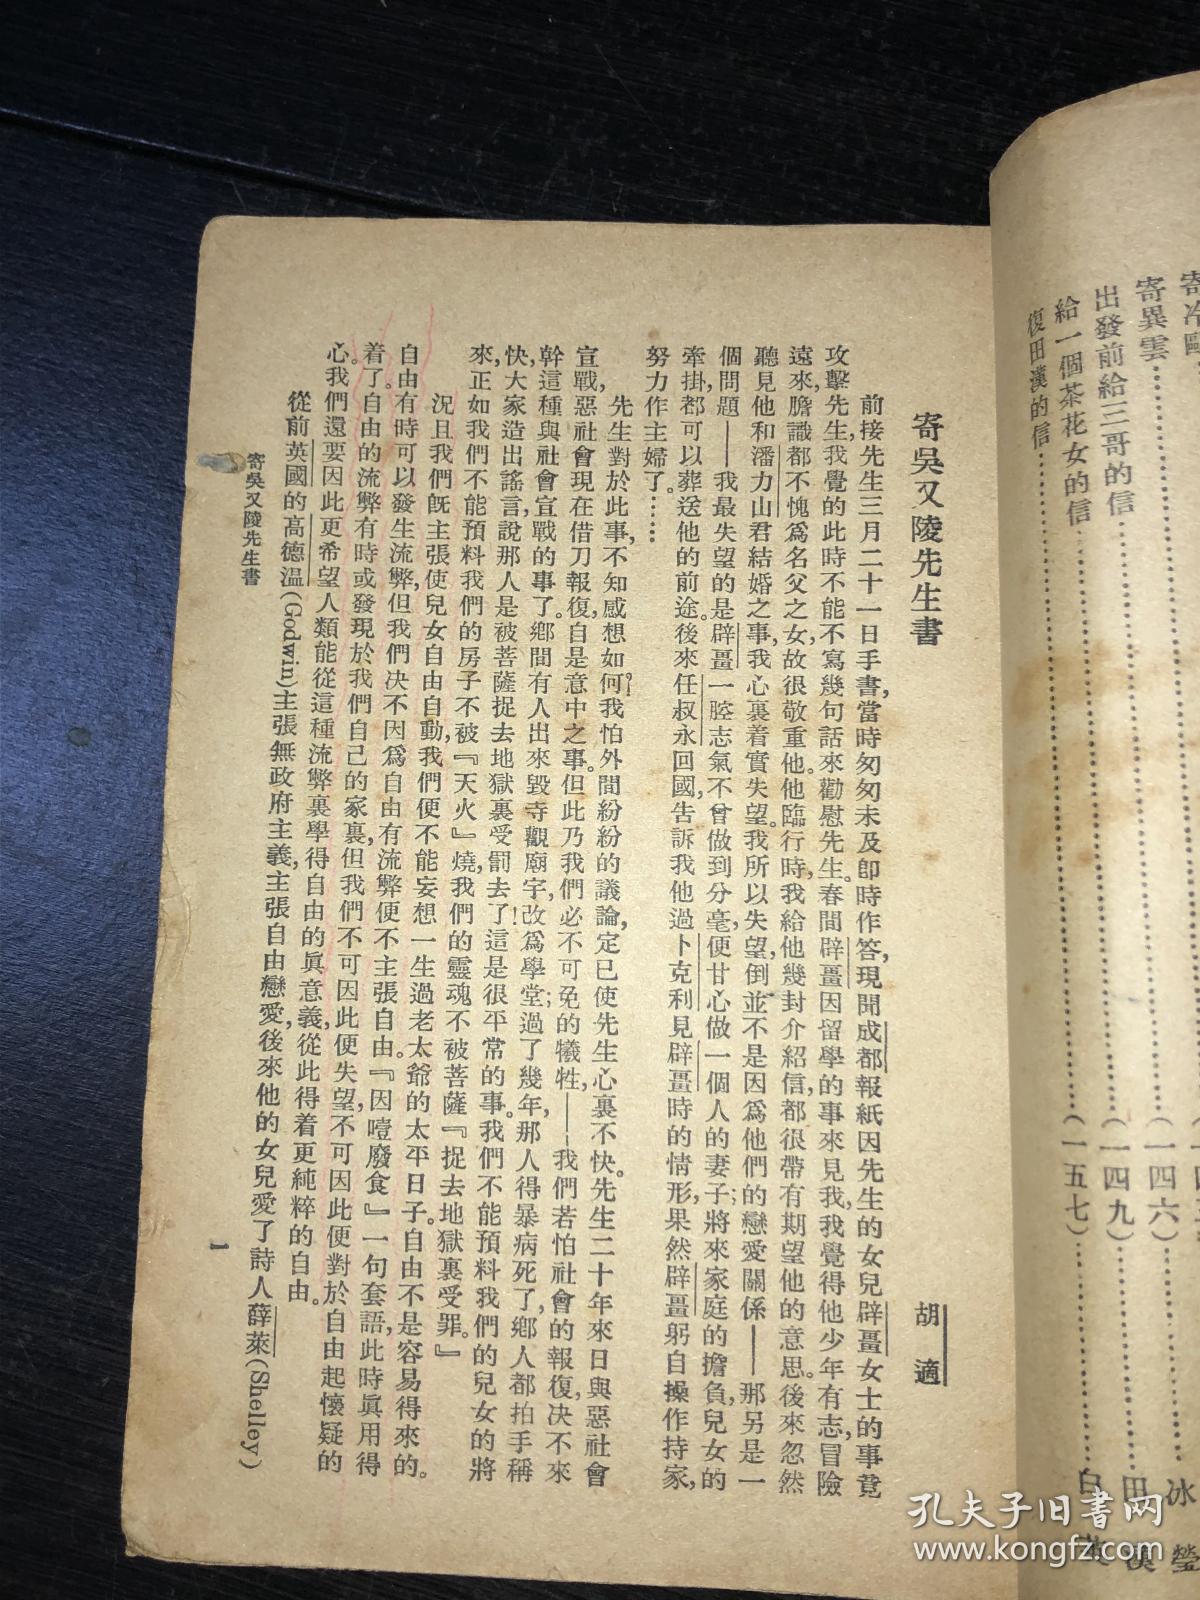 寄冷歐
寄異雲
出發前給三哥的信 (一四六) 冰瑩
給一個茶花女的信 (一四九) 田漢
復田漢的信 (一五七) 白
寄吳又陵先生書
胡適
前接先生三月二十一日手書,當時匆匆未及卽時作答,現聞成都報紙因先生的女兒辟畺女士的事竟
攻擊先生,我覺的此時不能不寫幾句話來勸慰先生。春間辟畺因留學的事來見我,我覺得他少年有志,冒險
遠來,膽識都不愧爲名父之女,故很敬重他。他臨行時,我給他幾封介紹信,都很帶有期望他的意思。後來忽然
聽見他和潘力山君結婚之事,我心裏着實失望。我所以失望,倒並不是因爲他們的戀愛關係——那另是一
個問題——我最失望的是辟畺一腔志氣不曾做到分毫,便甘心做一個人的妻子;將來家庭的擔負,兒女的
牽掛,都可以葬送他的前途。後來任叔永回國,告訴我他過卜克利見辟畺時的情形,果然辟畺躬自操作持家,
努力作主婦了。……
先生對於此事,不知感想如何?我怕外間紛紛的議論,定已使先生心裏不快。先生二十年來日與惡社會
宣戰,惡社會現在借刀報復,自是意中之事。但此乃我們必不可免的犧牲——我們若怕社會的報復,决不來
幹這種與社會宣戰的事了。鄉間有人出來毀寺觀廟宇,改爲學堂;過了幾年,那人得暴病死了,鄉人都拍手稱
快,大家造出謠言,說那人是被菩薩捉去地獄裏受罰去了!這是很平常的事。我們不能預料我們的兒女的將
來,正如我們不能預料我們的房子不被『天火』燒,我們的靈魂不被菩薩『捉去地獄裏受罪。』
況且我們旣主張使兒女自由自動,我們便不能妄想一生過老太爺的太平日子。自由不是容易得來的。
自由有時可以發生流弊,但我們决不因爲自由有流弊便不主張自由。『因噎廢食』一句套語,此時眞用得
着了。自由的流弊有時或發現於我們自己的家裏,但我們不可因此便失望,不可因此便對於自由起懷疑的
心。我們還要因此更希望人類能從這種流弊裏學得自由的眞意義,從此得着更純粹的自由。
從前英國的高德溫(Godwin)主張無政府主義,主張自由戀愛,後來他的女兒愛了詩人薛萊(Shelley)
寄吳又陵先生書
1
孔夫子旧書网
www.kongfz.com